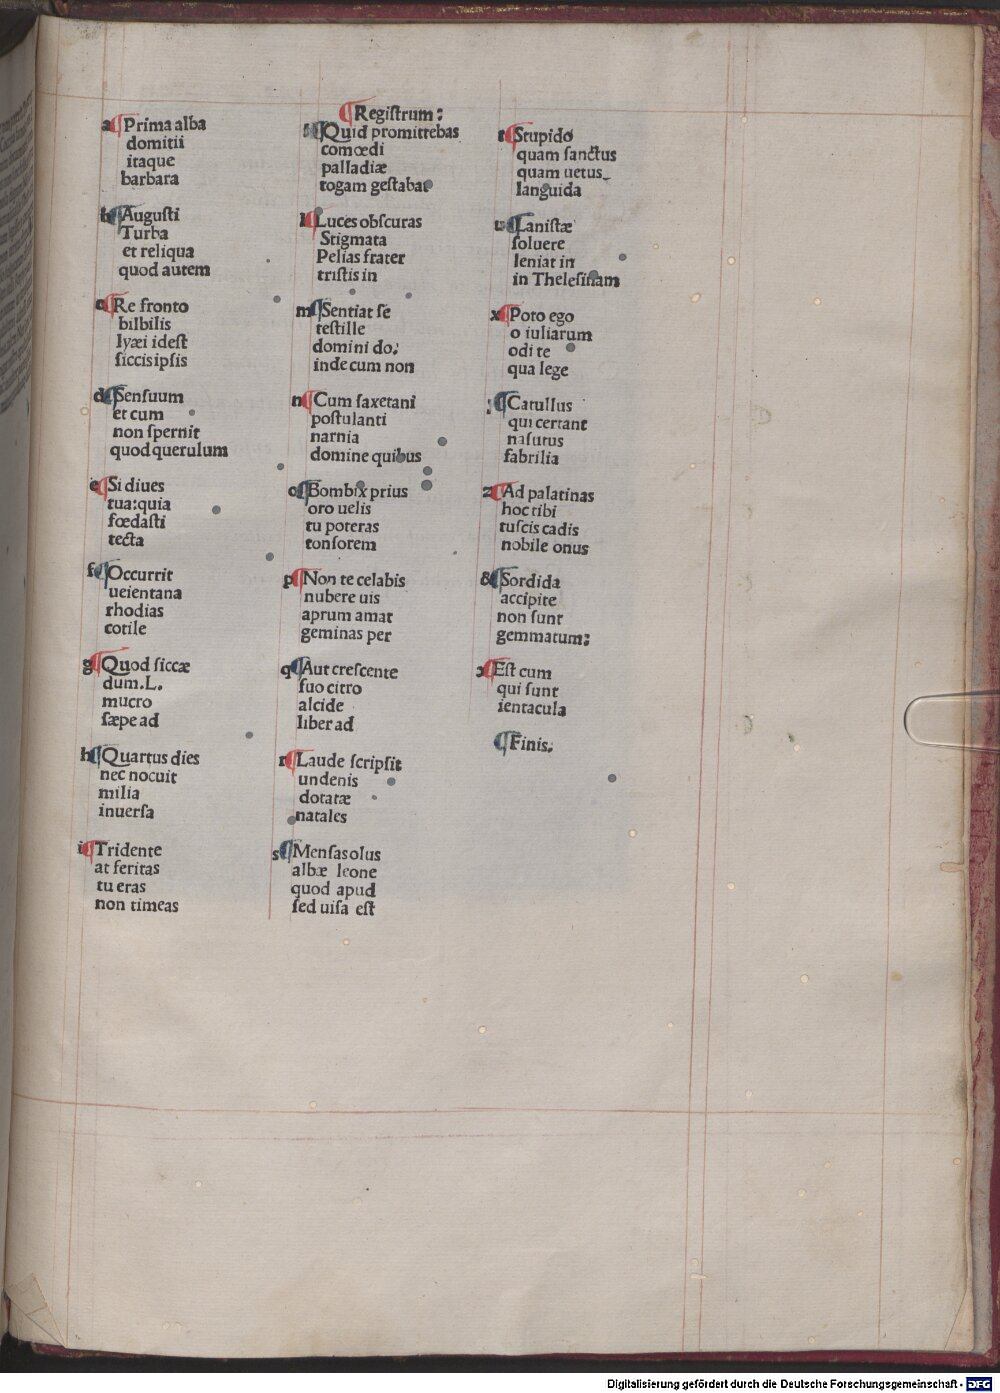 ¶Regiſtrum:
a¶Prima alba
domitii
itaque
barbara
b¶Auguſti
Turba
et reliqua
quod autem
c¶Re fronto
bilbilis
lyæi ideſt
ſiccis ipſis
d¶Senſuum
et cum
non ſpernit
quod querulum
e¶Si diues
tua:quia
fœdaſti
tecta
f¶Occurrit
ueientana
rhodias
cotile
g¶Quod ſiccæ
dum.L.
mucro
ſæpe ad
h¶Quartus dies
nec nocuit
milia
inuerſa
i¶Tridente
at feritas
tu eras
non timeas
¶Quid promittebas
comœdi
palladiæ
togam geſtabat
l¶Luces obſcuras
Stigmata
Pelias frater
triſtis in
m¶Sentiat ſe
teſtille
domini do:
inde cum non
n¶Cum ſaxetani
poſtulanti
narnia
domine quibus
o¶Bombix prius
oro uelis
tu poteras
tonſorem
p¶Non te celabis
nubere uis
aprum amat
geminas per
q¶Aut creſcente
ſuo citro
alcide
liber ad
r¶Laude ſcripſit
undenis
dotatæ
natales
s¶Menſas olus
albæ leone
quod apud
ſed uiſa eſt
t¶Stupido
quam ſanctus
quam uetus
languida
u¶Laniſtæ
ſoluere
leniat in
in Theleſinam
x¶Poto ego
o iuliarum
odi te
qua lege
¶Catullus
qui certant
naſutus
fabrilia
z¶Ad palatinas
hoc tibi
tuſcis cadis
nobile onus
&¶Sordida
accipite
non ſunt
gemmatum:
ɔ¶Eſt cum
qui ſunt
ientacula
¶Finis.
Digitalisierung gefördert durch die Deutsche Forschungsgemeinschaft - DFG